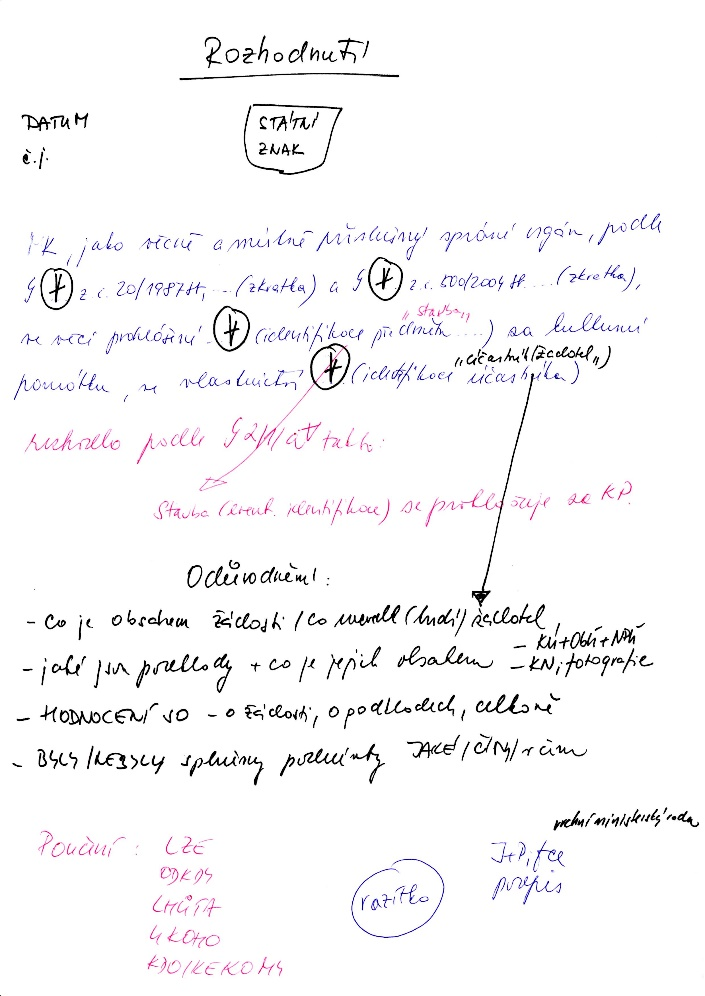 Rozhodnutí
DATUM
č.j.
STÁTNÍ
ZNAK
MK, jako věcně a místně příslušný správní orgán, podle
§ z. č. 20/1987 Sb, ... (zkratka) a § z. č. 500/2004 Sb. .... (zkratka),
ve věci prohlášení (identifikace předmětu ....) za kulturní
„stavba„
památku, ve vlastnictví (identifikace účastníka)
„účastník/žadatel„)
rozhodlo podle § 2/1/a takto:
Stavba (event. identifikace) se prohlašuje za KP.
Odůvodnění:
- co je obsahem žádosti / co uvedl (tvrdí) žadatel,
- jaké jsou podklady + co je jejich obsahem
- KÚ+ObÚ+NPÚ
- KN, fotografie
- HODNOCENÍ SO - o žádosti, o podkladech, celkově
- BYLY/NEBYLY splněny podmínky JAKÉ/ČÍM/v čem
Poučení: LZE
ODKDY
LHŮTA
U KOHO
KDO/KE KOMU
razítko
vrchní ministerský rada
J+P, fce
podpis